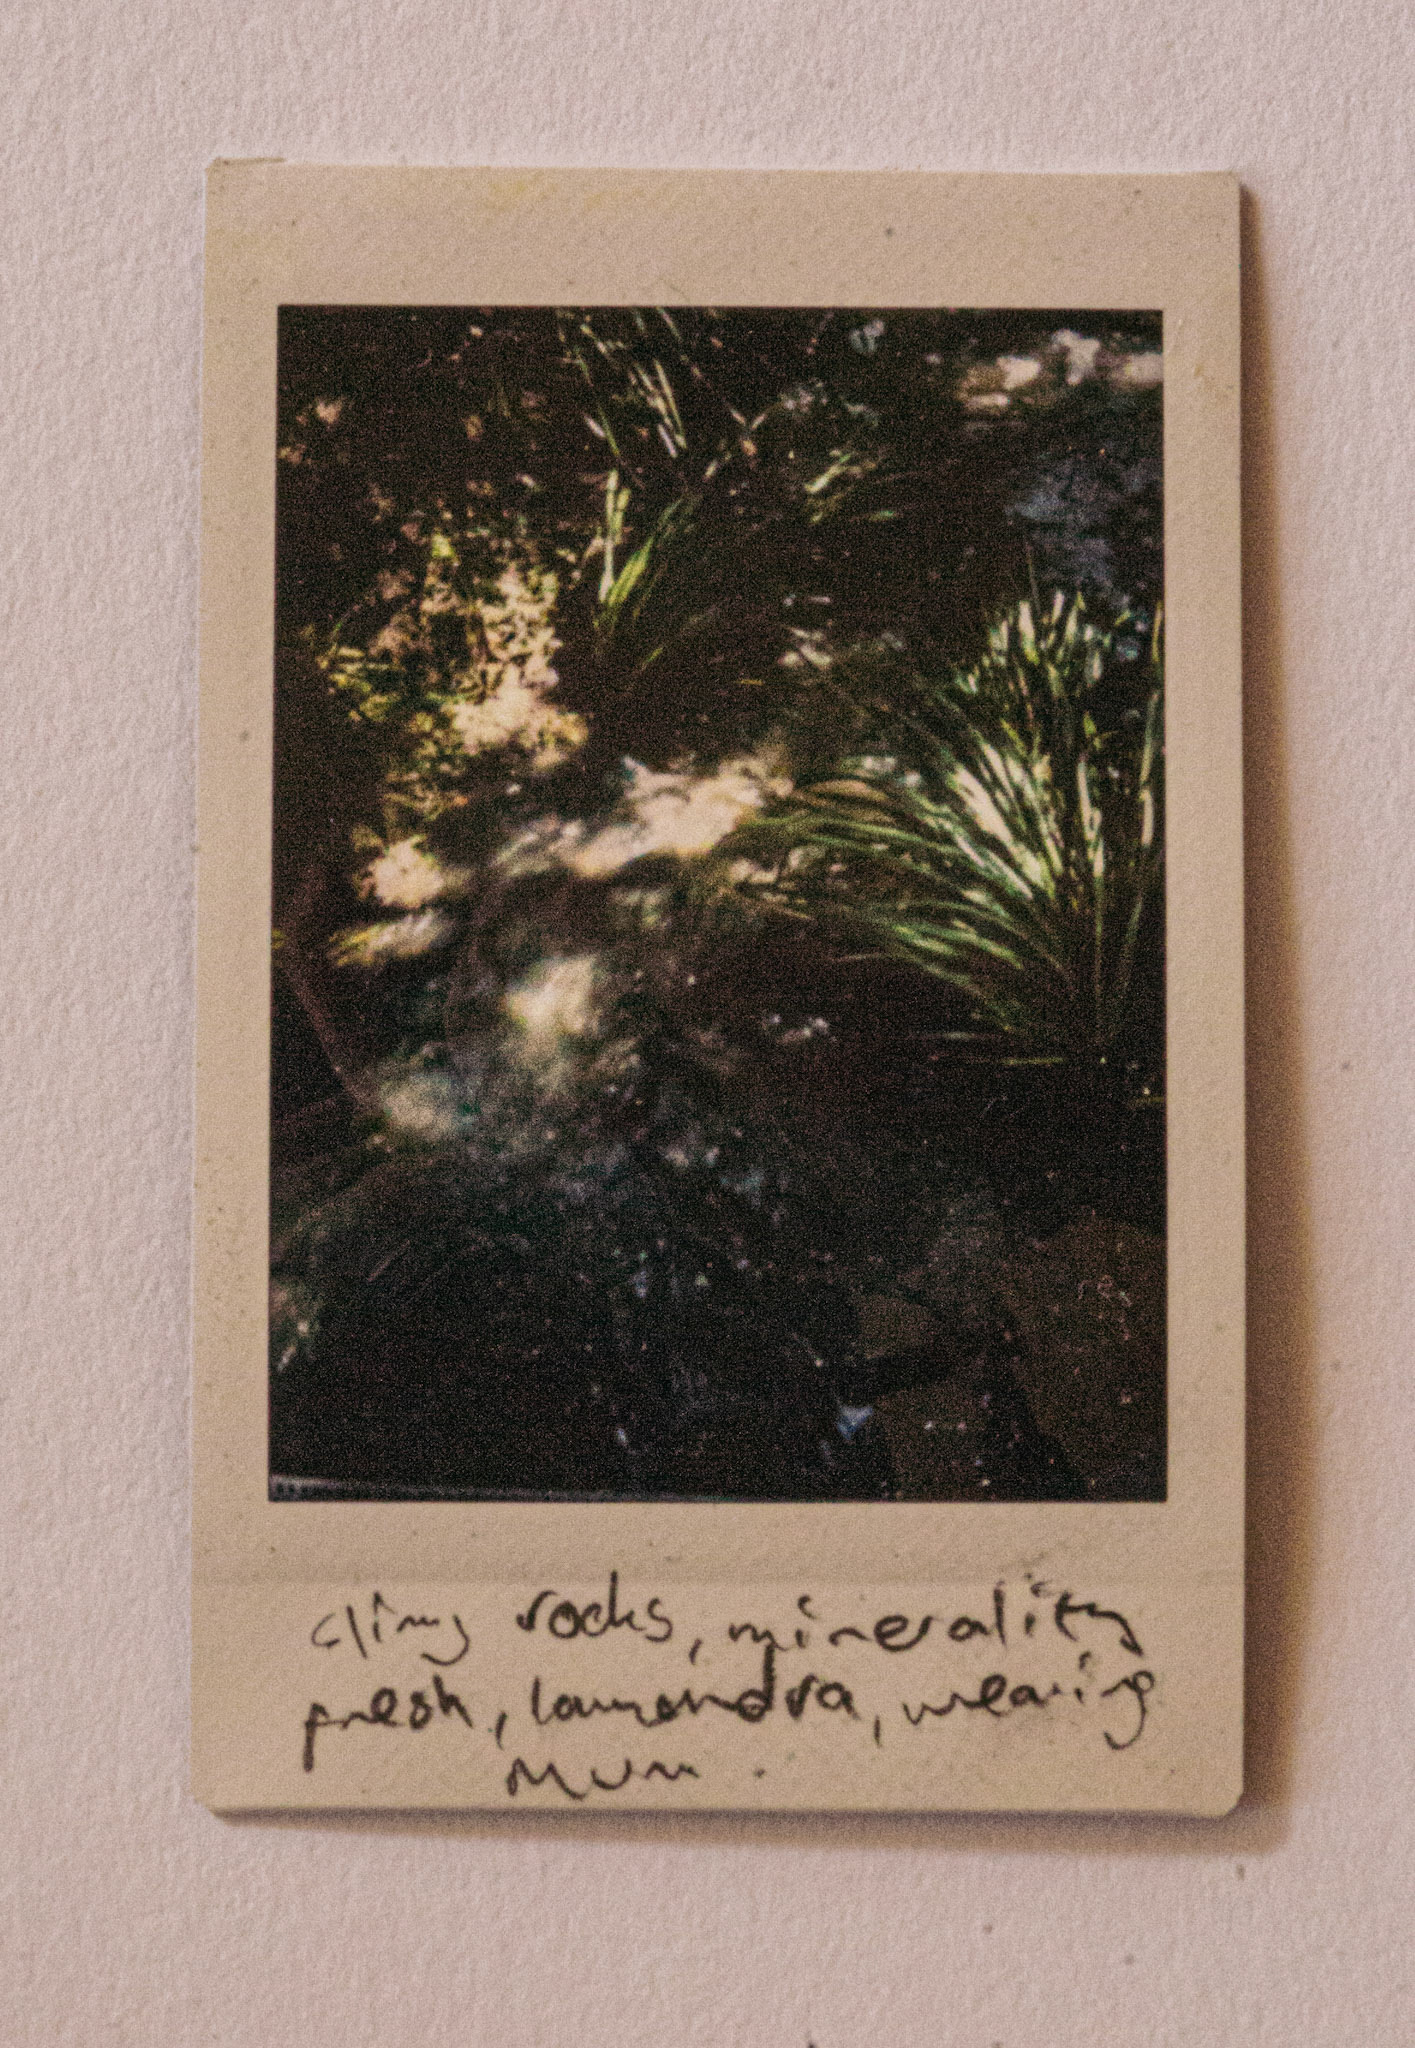 rocks, minerality
fresh, lomandra, weaving
mum.